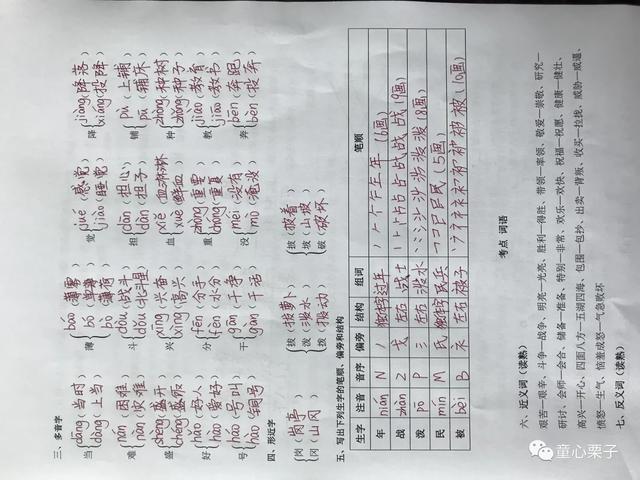 三、多音字
当 dāng(当时) dàng(上当)
薄 báo bó bò(薄荷)
觉 jué(感觉) jiào(睡觉)
降 jiàng(降落) xiáng(投降)
难 nán(困难) nàn(灾难)
斗 dòu(战斗) dǒu(北斗星)
担 dān(担心) dàn(担子)
铺 pù(上铺) pū(铺床)
盛 shèng(盛开) chéng(盛饭)
兴 xīng(兴奋) xìng(高兴)
血 xiě(血淋淋) xuè(鲜血)
种 zhòng(种树) zhǒng(种子)
好 hǎo(好人) hào(爱好)
分 fēn(分手) fèn(水分)
重 zhòng(重要) chóng(重复)
教 jiào(教育) jiāo(教书)
号 háo(号叫) hào(铜号)
干 gān(干净) gàn(干活)
没 méi(没有) mò(淹没)
奔 bēn(奔跑) bèn(投奔)
四、形近字
岗(岗亭) 冈(山冈)
拔(拔萝卜) 泼(泼水) 拨(拨动)
披(披着) 坡(山坡) 破(破坏)
五、写出下列生字的笔顺、偏旁和结构
生字 注音 音序 偏旁 结构 组词 笔顺
年 nián N 丿 独体字 过年 (6画)
战 zhàn Z 戈 左右 战士 (9画)
泼 pō P 氵 左右 泼水 (8画)
民 mín M 民 独体字 民兵 (5画)
被 bèi B 衤 左右 被子 (10画)
考点 词语
六、近义词(读熟)
艰苦—艰辛、斗争—战争、明亮—光亮、胜利—得胜、带领—率领、敬爱—崇敬、研究—
研讨、会师—会合、储备—准备、特别—非常、欢乐—欢快、祝福—祝愿、健康—健壮、
高兴—开心、四面八方—五湖四海、包围—包抄、出卖—背叛、收买—拉拢、威胁—威逼、
愤怒—生气、恼羞成怒—气急败坏
七、反义词(读熟)
童心栗子